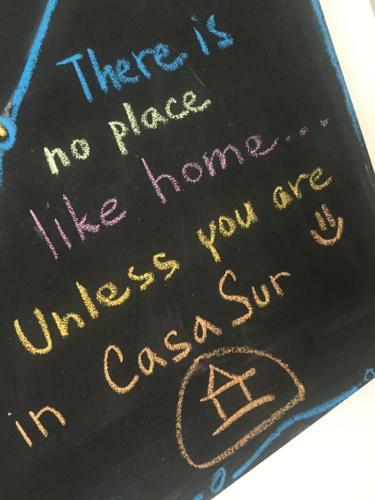 There is
no place
like home...
Unless you are
in Casa Sur